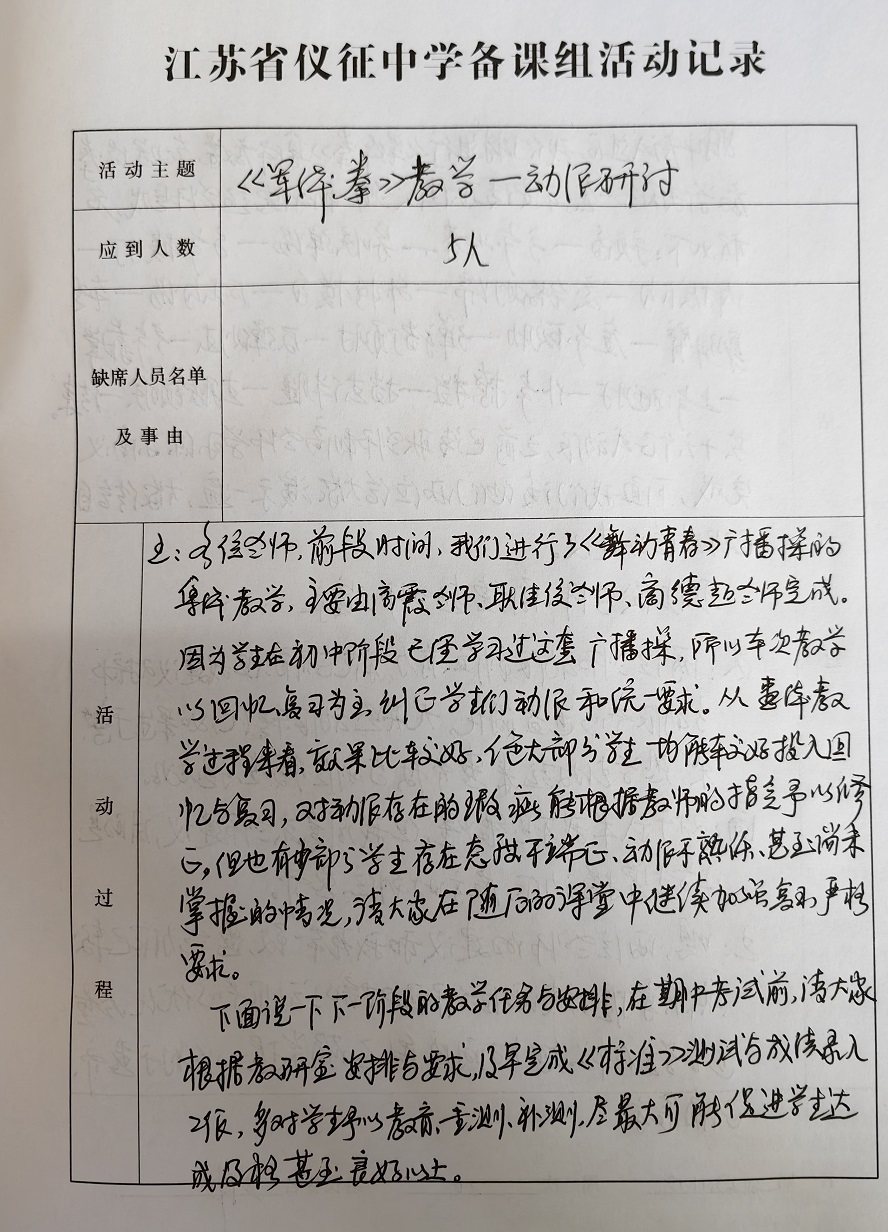 江苏省仪征中学备课组活动记录
活动主题
《军体拳》教学—动作研讨
应到人数
5人
缺席人员名单
及事由
活动过程
主：各位老师，前段时间，我们进行了《舞动青春》广播操的
集体教学，主要由高霞老师、耿佳俊老师、高德超老师完成。
因为学生在初中阶段已经学习过这套广播操，所以本次教学
以回忆复习为主，纠正学生们动作和统一要求。从整体教
学过程来看，效果比较好，绝大部分学生均能较好投入回
忆与复习，对动作存在的瑕疵能根据教师的指令予以修
正，但也有少部分学生存在态度不端正、动作不熟练、甚至尚未
掌握的情况，请大家在随后的课堂中继续加强复习严格
要求。
下面说一下下一阶段的教学任务与安排，在期中考试前，请大家
根据教研室安排与要求，及早完成《标准》测试与成绩录入
工作，多对学生予以教育、重测、补测，尽最大可能促进学生达
成及格甚至良好以上。